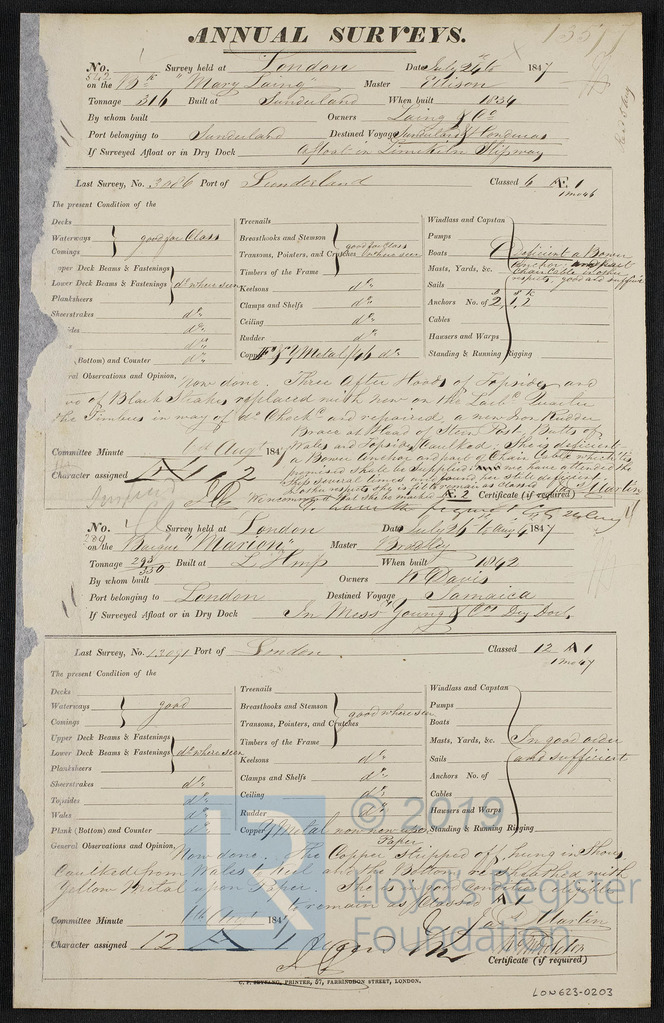 ANNUAL SURVEYS.
No. 542 Survey held at London Date July 24th 1847
on the Bk "Mary Laing" Master Ellison
Tonnage 316 Built at Sunderland When built 1834
By whom built Owners Laing & Co
Port belonging to Sunderland Destined Voyage Sunderland & Honduras
If Surveyed Afloat or in Dry Dock Afloat in Limekiln Slipway
Last Survey, No. 3086 Port of Sunderland Classed 6 Æ 1
1 mo 46
The present Condition of the
Decks
Waterways good for Class
Comings
Upper Deck Beams & Fastenings
Lower Deck Beams & Fastenings do where seen
Planksheers
Sheerstrakes do
ides do
do
(Bottom) and Counter do
Treenails
Breasthooks and Stemson good for Class
Transoms, Pointers, and Crutches where seen
Timbers of the Frame
Keelsons do
Clamps and Shelfs do
Ceiling do
Rudder do
Copper Y Metal /46 do
Windlass and Capstan
Pumps
Boats Deficient a Bower
Masts, Yards, &c. Anchor and part Chain Cable in other
Sails respects, good and sufficient
Anchors No. of 2, 1, 2
Cables
Hawsers and Warps
Standing & Running Rigging
ral Observations and Opinion, Now done. Three After Hoods of Topsides and
of Black Strakes replaced with new on the Larbd Quarter
the Timbers in way of do Chockd and repaired, a new Iron Rudder
Brace at Head of Stern Post, Butts of
Wales and Topsides Caulked. She is deficient
a Bower Anchor and part of Chain Cable which it is
promised shall be supplied. we have attended the
Ship several times and found her still deficient
Committee Minute 1847
Character assigned Æ 1, 2
we recommend that she be marked Æ. 2 Certificate (if required)
Martin
No. 289 Survey held at London Date July 26 to Aug 4 1847
on the Barque "Marion" Master Bradley
Tonnage 293/350 Built at L. Hmp When built 1842
By whom built Owners R Davis
Port belonging to London Destined Voyage Jamaica
If Surveyed Afloat or in Dry Dock In Messrs Young & Cos Dry Dock
Last Survey, No. 13091 Port of London Classed 12 A 1
1 mo 47
The present Condition of the
Decks
Waterways good
Comings
Upper Deck Beams & Fastenings
Lower Deck Beams & Fastenings do where seen
Planksheers
Sheerstrakes do
Topsides do
Wales do
Plank (Bottom) and Counter do
Treenails
Breasthooks and Stemson good where seen
Transoms, Pointers, and Crutches
Timbers of the Frame
Keelsons do
Clamps and Shelfs do
Ceiling do
Rudder do
Copper Y Metal now new over Paper
Windlass and Capstan
Pumps
Boats
Masts, Yards, &c. In good order
Sails and sufficient
Anchors No. of
Cables
Hawsers and Warps
Standing & Running Rigging
General Observations and Opinion, Now done. The Copper Stripped off, hung in Shores
Caulked from Wales to Keel and the Bottom resheathed with
Yellow Metal upon Paper. She is in good condition eligible
to remain as Classed A 1
Committee Minute 1847
Character assigned 12 A 1
Martin
Certificate (if required)
C. F. SEYFANG, PRINTER, 57, FARRINGDON STREET, LONDON.
LR © 2019
Lloyd's Register
Foundation
LON623-0203